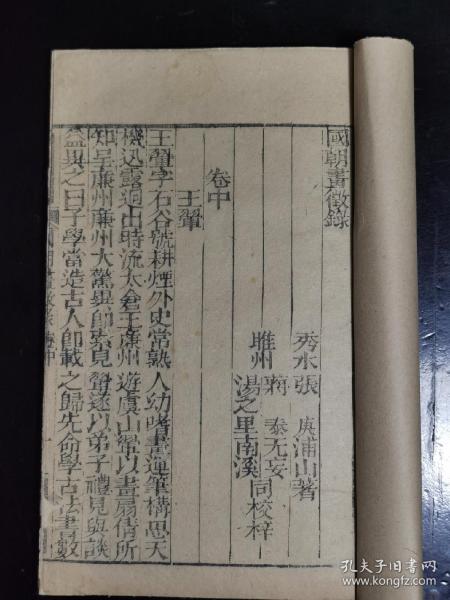 國朝畫徵錄
秀水張　庚浦山著
睢州　蔣　泰无妄
湯之里南溪
同校梓
卷中
王翬
王翬字石谷號耕煙外史常熟人幼嗜畫運筆構思天
機迅露迥出時流太倉王廉州遊虞山翬以畫扇倩所
知呈廉州廉州大驚異即索見翬遂以弟子禮見與談
益異之曰子學當造古人即載之歸先命學古法書數
國朝畫徵錄 卷中
孔夫子旧书网
book.kongfz.com